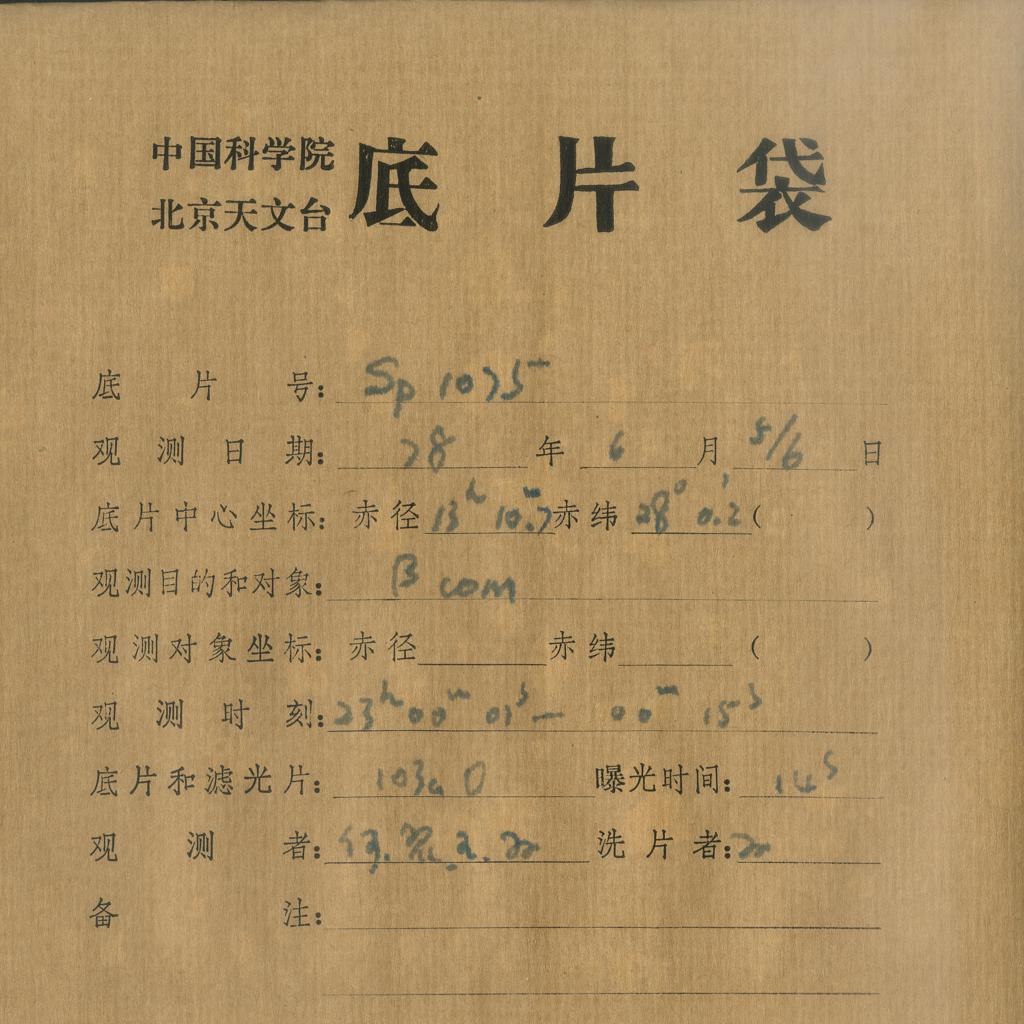 中国科学院
北京天文台
底片袋
底片号: Sp 1075
观测日期: 78年6月5/6日
底片中心坐标: 赤径13h 10.7m赤纬28° 0.2′( )
观测目的和对象: β com
观测对象坐标: 赤径 赤纬 ( )
观测时刻: 23h 00m 01s — 00m 15s
底片和滤光片: 103a O 曝光时间: 14s
观测者: 洗片者:
备注: